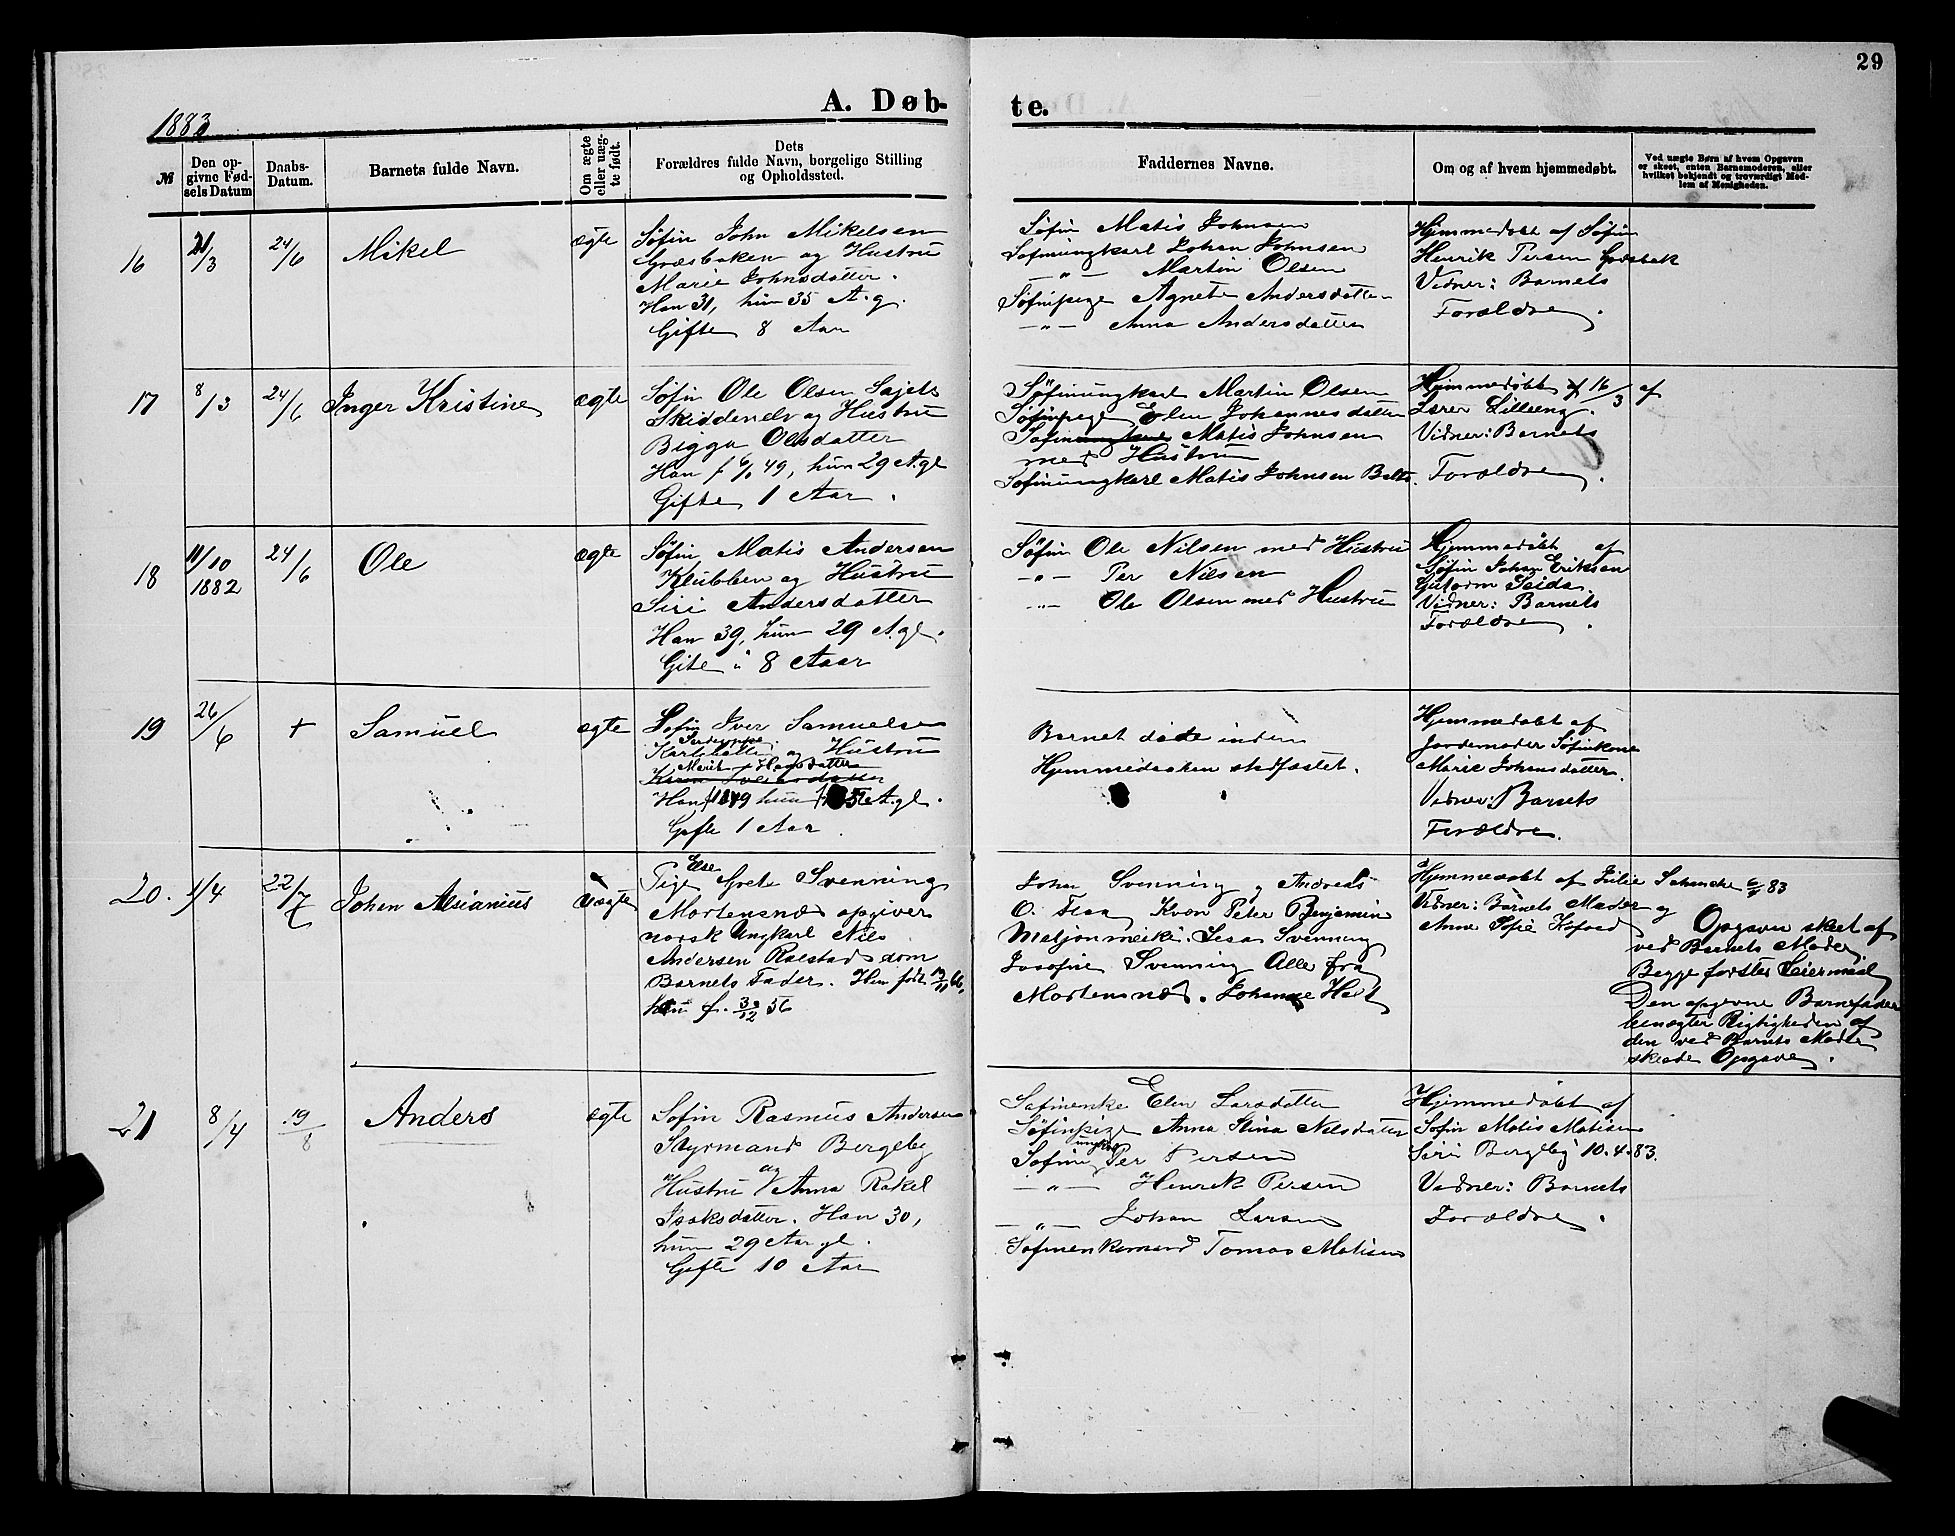 29
A. Døb-
te.
1883
№
Den op-
givne Fød-
sels Datum
Daabs-
Datum.
Barnets fulde Navn.
Om ægte
eller uæg-
te født.
Dets
Forældres fulde Navn, borgelige Stilling
og Opholdssted.
Faddernes Navne.
Om og af hvem hjemmedøbt.
Ved uægte Børn af hvem Opgaven
er skeet, enten Barnemoderen, eller
hvilket bekjendt og troværdigt Med-
lem af Menigheden.
16
21/3
24/6
Mikel
ægte
Søfin John Mikelsen
Græsbaken og Hustru
Marie Johnsdatter.
Han 31, hun 35 A.g.
Gifte 8 Aar
Søfin Matis Johnsen
Søfinungkarl Johan Johnsen
—"— Martin Olsen
Søfinpige Agnete Andersdatter
—"— Anna Andersdatter
Hjemmedøbt af Søfin
Henrik Persen Græsbak
Vidner: Barnets
Forældre.
17
8/3
24/6
Inger Kristine
ægte
Søfin Ole Olsen Sajets
Skiddenelv og Hustru
Bigga Olsdatter
Han f 6/6 49, hun 29 A.gl
Gifte 1 Aar.
Søfinungkarl Martin Olsen
Søfinpige Elen Johannesdatter
Søfin Matis Johnsen
med Hustru
Søfinungkarl Matis Johnsen Balto.
Hjemmedøbt 16/3 af
Lærer Lilleeng.
Vidner: Barnets
Forældre.
18
11/10
1882
24/6
Ole
ægte
Søfin Matis Andersen
Klubben og Hustru
Siri Andersdatter
Han 39, hun 29 A.gl.
Gifte i 8 Aar
Søfin Ole Nilsen med Hustru
—"— Per Nilsen
—"— Ole Olsen med Hustru
Hjemmedøbt af
Søfin Johan Eriksen
Guttorm Seida.
Vidner: Barnets
Forældre.
19
26/6
+
Samuel
ægte
Søfin Iver Samuelsen
Karlebotten og Hustru
Marit Hansdatter
Han f 1849 hun A.gl.
Gifte 1 Aar
Barnet døde inden
Hjemmedaaben stadfæstet.
Hjemmedøbt af
Jordemoder Søfinkone
Marie Johansdatter.
Vidner: Barnets
Forældre.
20.
1/4
22/7
Johan Asianius
uægte
Pige Else Grete Svenning
Mortensnæs opgiver
norsk Ungkarl Nils
Andersen Ralstad som
Barnets Fader. Han født 19/11 61,
hun f. 30/12 56
Johan Svenning og Andreas
O. Flaa, Kvæn Peter Benjamin
Matjonmeiki. Lesa Svenning
Josefine Svenning Alle fra
Mortensnæs. Johanne Holt
Hjemmedøbt af Julie Schanche 6/4 83
Vidner: Barnets Moder og
Anne Sofie Kofoed
Opgaven skeet af
ved Barnets Moder
Begge første Leiermaal
Den opgivne Barnefader
benægter Rigtigheden af
den ved Barnets Moder
skeede Opgave.
21
8/4
19/8
Anders
ægte
Søfin Rasmus Andersen
Styrmand Bergeby
og
Hustru Anna Rakel
Isaksdatter. Han 30,
hun 29 Aar gl.
Gifte 10 Aar
Søfinenke Elen Larsdatter
Søfinpige Anna Stina Nilsdatter
Søfinungkarl Per Persen
—"— Henrik Persen
—"— Johan Larsen
Søfinenkemand Tomas Matisen
Hjemmedøbt af
Søfin Matis Matisen
Siri Bergeby 10.4.83.
Vidner: Barnets
Forældre.